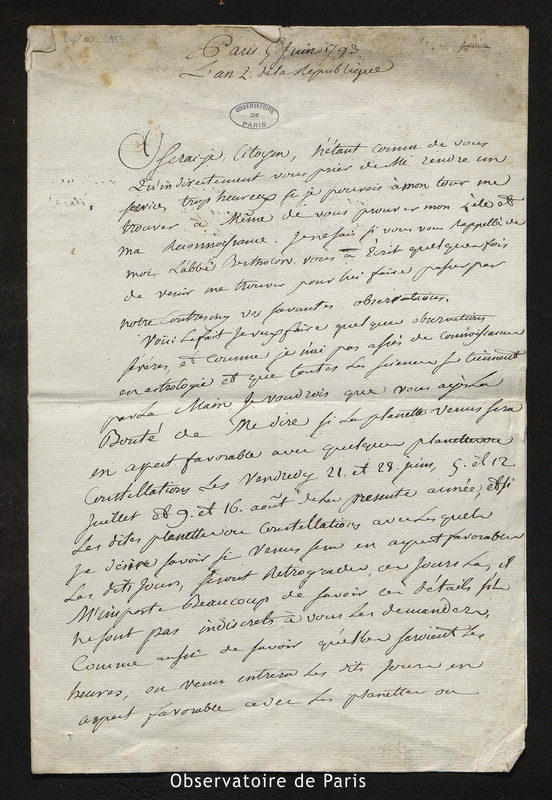 Paris 5 Juin 1793
L'an 2. de la Republique
OBSERVATOIRE
DE
PARIS
Oserai-je, Citoyen, n'étant connu de vous
qu'indirectement vous prier de me rendre un
service, trop heureux si je pouvois à mon tour me
trouver à Même de vous prouver mon zèle et
ma Reconnoissance. Je ne sais si vous vous rappellés de
moi, L'abbé Bertholon vous a Ecrit quelques fois
de venir me trouver pour lui faire passer par
notre Contreseing vos savantes observations.
Voici Le fait Je veux faire quelques observations
sérées, et comme je n'ai pas assés de connoissances
en astrologie et que toutes Les sciences se tiennent
par La Main Je voudrois que vous ayés La
Bonté de Me dire si La planette Venus sera
en aspect favorable avec quelques planettes ou
Constellations Les Vendredy 21. et 28. juin, 5. et 12
Juillet et 9. et 16. août de La presente année, et si
Les dites planettes ou Constellations avec Lesquels
Je désire savoir si Venus sera en aspect favorable
Les dits Jours, seront Retrogrades, ces Jours La, il
M'importe Beaucoup de savoir ces détails s'ils
ne sont pas indiscrets à vous Les demander,
Comme aussi de savoir quelles seroient Les
heures, ou venus entrera Les dits Jours en
aspect favorable avec Les planettes ou
Observatoire de Paris